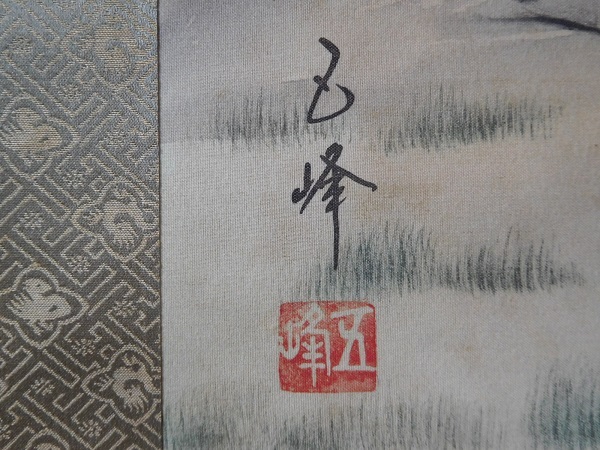 五峰
五峰